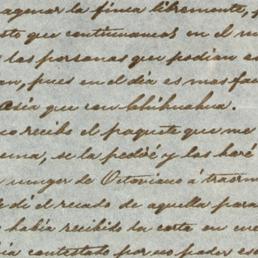 agenar la finca libremente, y
esto que continuamos en el m
las personas que podian en
an, pues en el dia es mas fac
casia que con Chihuahua.
co recibo el paquete que me
ema, se la pediré y las haré
muger de Octaviano á trasm
le dí el recado de aquella para
habia recibido la carta en cue
ia contestado por no poder es